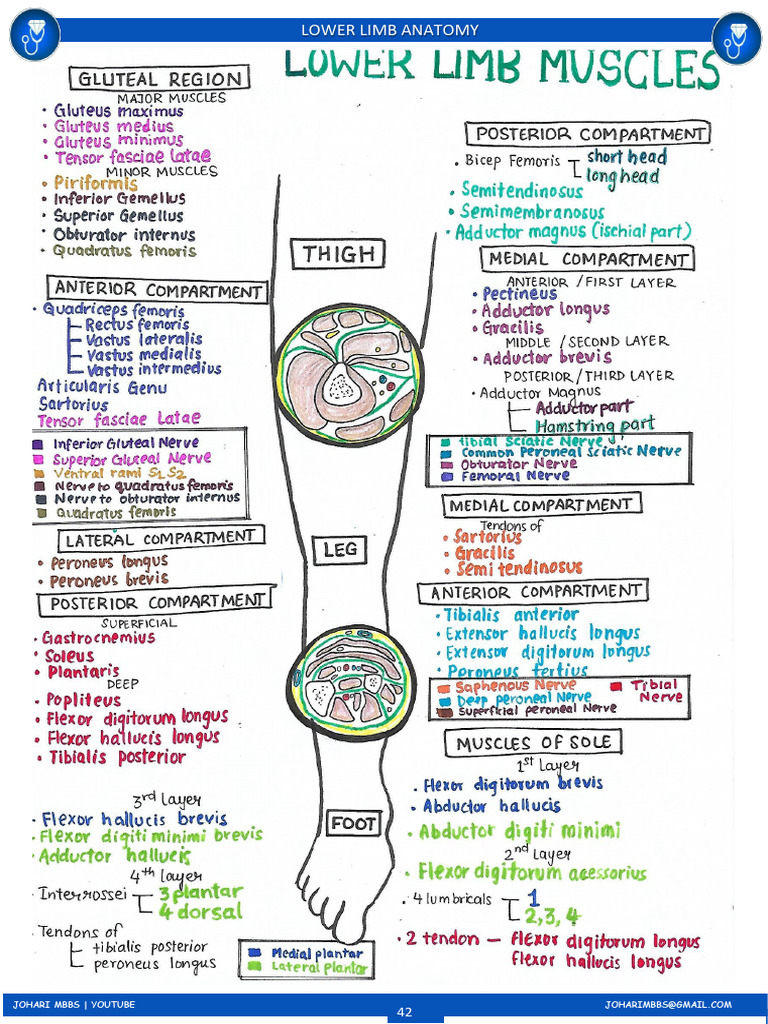 LOWER LIMB ANATOMY
LOWER LIMB MUSCLES
GLUTEAL REGION
MAJOR MUSCLES
• Gluteus maximus
• Gluteus medius
• Gluteus minimus
• Tensor fasciae latae
MINOR MUSCLES
• Piriformis
• Inferior Gemellus
• Superior Gemellus
• Obturator internus
• Quadratus femoris
ANTERIOR COMPARTMENT
• Quadriceps femoris
Rectus femoris
Vastus lateralis
Vastus medialis
Vastus intermedius
Articularis Genu
Sartorius
Tensor fasciae Latae
Inferior Gluteal Nerve
Superior Gluteal Nerve
Ventral rami S1 S2
Nerve to quadratus femoris
Nerve to obturator internus
Quadratus femoris
LATERAL COMPARTMENT
• Peroneus longus
• Peroneus brevis
POSTERIOR COMPARTMENT
SUPERFICIAL
• Gastrocnemius
• Soleus
• Plantaris
DEEP
• Popliteus
• Flexor digitorum longus
• Flexor hallucis longus
• Tibialis posterior
3rd Layer
• Flexor hallucis brevis
• Flexor digiti minimi brevis
• Adductor hallucis
4th Layer
• Interrossei
3 plantar
4 dorsal
• Tendons of
tibialis posterior
peroneus longus
THIGH
LEG
FOOT
Medial plantar
Lateral plantar
POSTERIOR COMPARTMENT
• Bicep Femoris
short head
long head
• Semitendinosus
• Semimembranosus
• Adductor magnus (ischial part)
MEDIAL COMPARTMENT
ANTERIOR / FIRST LAYER
• Pectineus
• Adductor longus
• Gracilis
MIDDLE / SECOND LAYER
• Adductor brevis
POSTERIOR / THIRD LAYER
• Adductor Magnus
Adductor part
Hamstring part
Tibial Sciatic Nerve
Common Peroneal Sciatic Nerve
Obturator Nerve
Femoral Nerve
MEDIAL COMPARTMENT
Tendons of
• Sartorius
• Gracilis
• Semitendinosus
ANTERIOR COMPARTMENT
• Tibialis anterior
• Extensor hallucis longus
• Extensor digitorum longus
• Peroneus tertius
Saphenous Nerve
Deep peroneal Nerve
Superficial peroneal Nerve
Tibial
Nerve
MUSCLES OF SOLE
1st Layer
• Flexor digitorum brevis
• Abductor hallucis
• Abductor digiti minimi
2nd Layer
• Flexor digitorum acessorius
• 4 lumbricals
1
2, 3, 4
• 2 tendon — flexor digitorum longus
flexor hallucis longus
JOHARI MBBS | YOUTUBE
42
JOHARIMBBS@GMAIL.COM